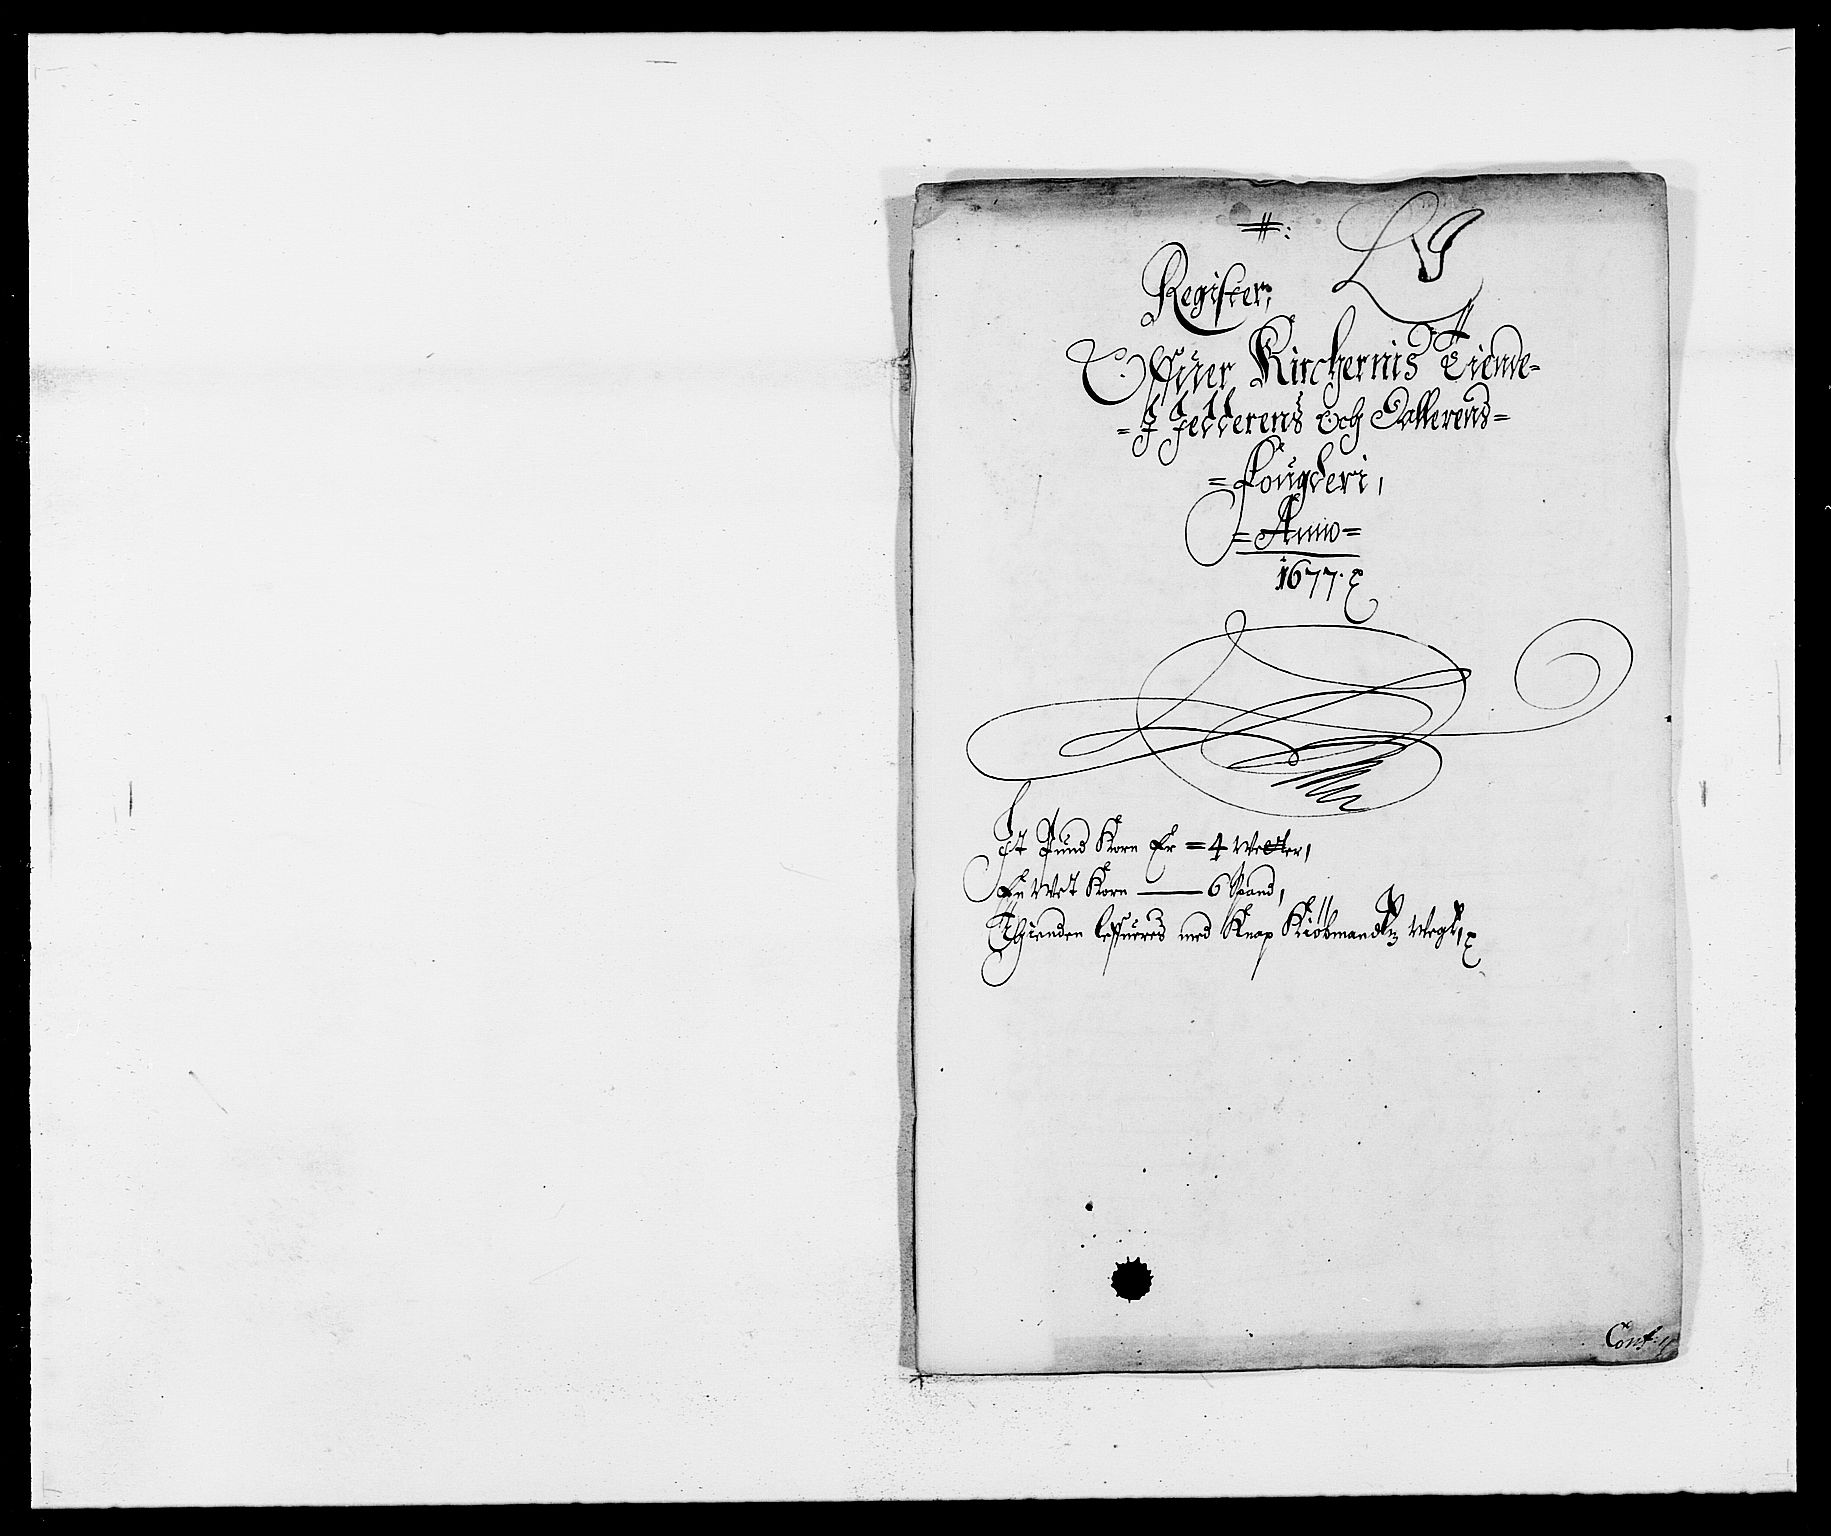 Register,
Offuer Kirchernis Tiende
= J Jedderens och Dallerens =
= Fougderi,
= Anno =
1677.
Jt Pund Korn Er = 4 Wetter,
En Wet Korn —— 6 Spand,
Thienden leffueres med Knap Kiöbmandz Wegt,